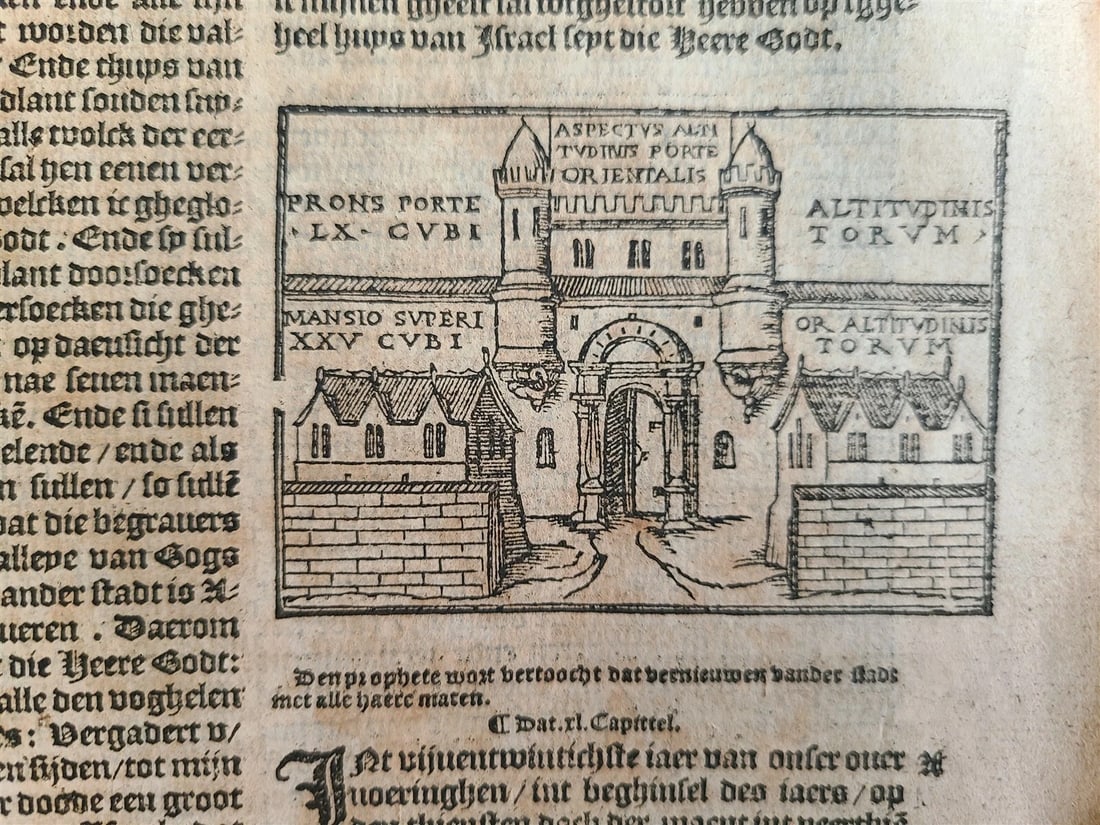 worden die val⸗
Ende thuys van
dlant souden suy⸗
alle volck der eer⸗
sal hen eenen ver⸗
welcken ic gheglo⸗
Godt. Ende sy sul⸗
lant doorsoecken
ersoecken die ghe⸗
op daensicht der
nae seuen maen⸗
kē. Ende si sullen
elende/ende als
n sullen/so sullē
dat die begrauers
alleye van Gogs
ander stadt is A⸗
ueren. Daerom
die Heere Godt:
alle den voghelen
s: Vergadert v/
en sijden/tot mijn
r doode een groot
heel huys van Israel seyt die Heere Godt.
ASPECTVS ALTI
TVDINIS PORTE
ORIENTALIS
PRONS PORTE
· LX · CVBI
ALTITVDINIS
TORVM
MANSIO SVPERI
XXV CVBI
OR ALTITVDINIS
TORVM
Den prophete wort vertoocht dat vernieuwen vander stadt
met alle haere maten.
¶ Dat.xl.Capittel.
INt vijuentwintichste iaer van onser ouer
uoeringhen/int beghinsel des iaers/op